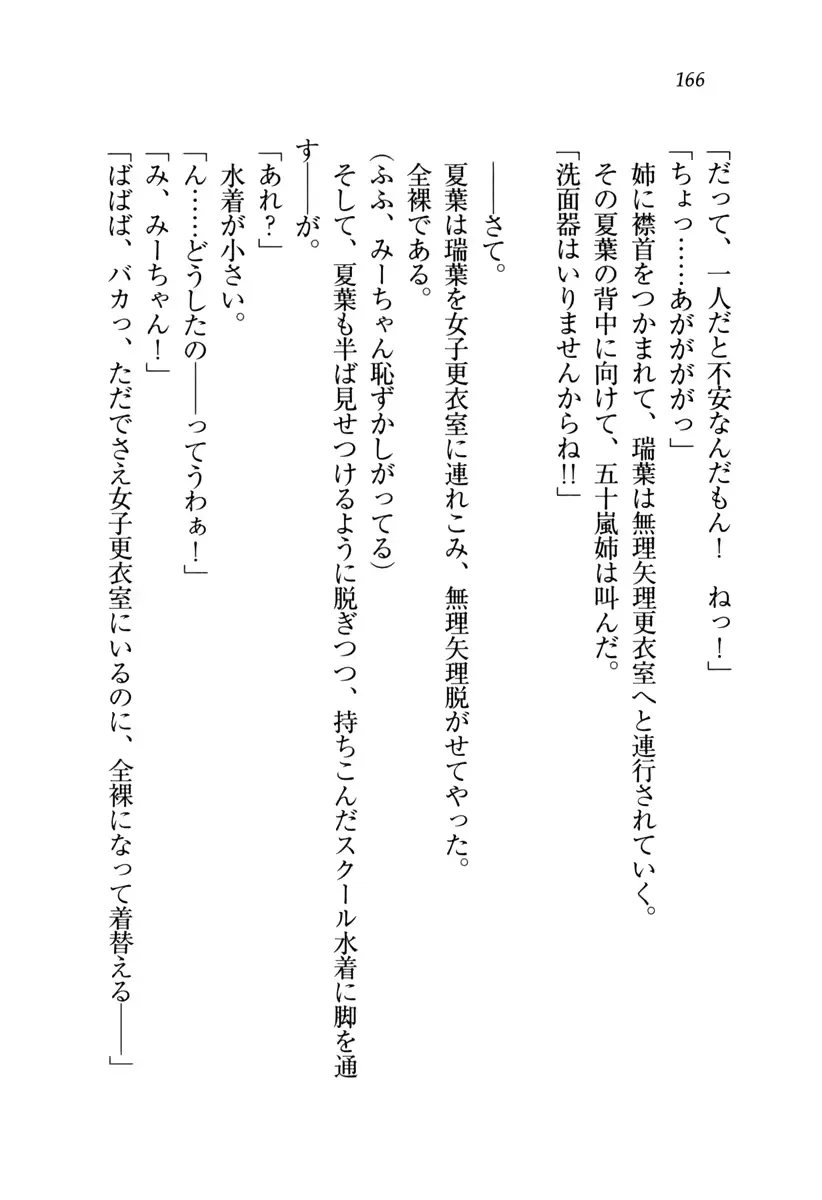 166
「だって、一人だと不安なんだもん！　ねっ！」
「ちょっ……あががががっ」
姉に襟首をつかまれて、瑞葉は無理矢理更衣室へと連行されていく。
その夏葉の背中に向けて、五十嵐姉は叫んだ。
「洗面器はいりませんからね!!」
――さて。
夏葉は瑞葉を女子更衣室に連れこみ、無理矢理脱がせてやった。
全裸である。
(ふふ、みーちゃん恥ずかしがってる)
そして、夏葉も半ば見せつけるように脱ぎつつ、持ちこんだスクール水着に脚を通
す――が。
「あれ？」
水着が小さい。
「ん……どうしたの――ってうわぁ！」
「み、みーちゃん！」
「ばばば、バカっ、ただでさえ女子更衣室にいるのに、全裸になって着替える――」